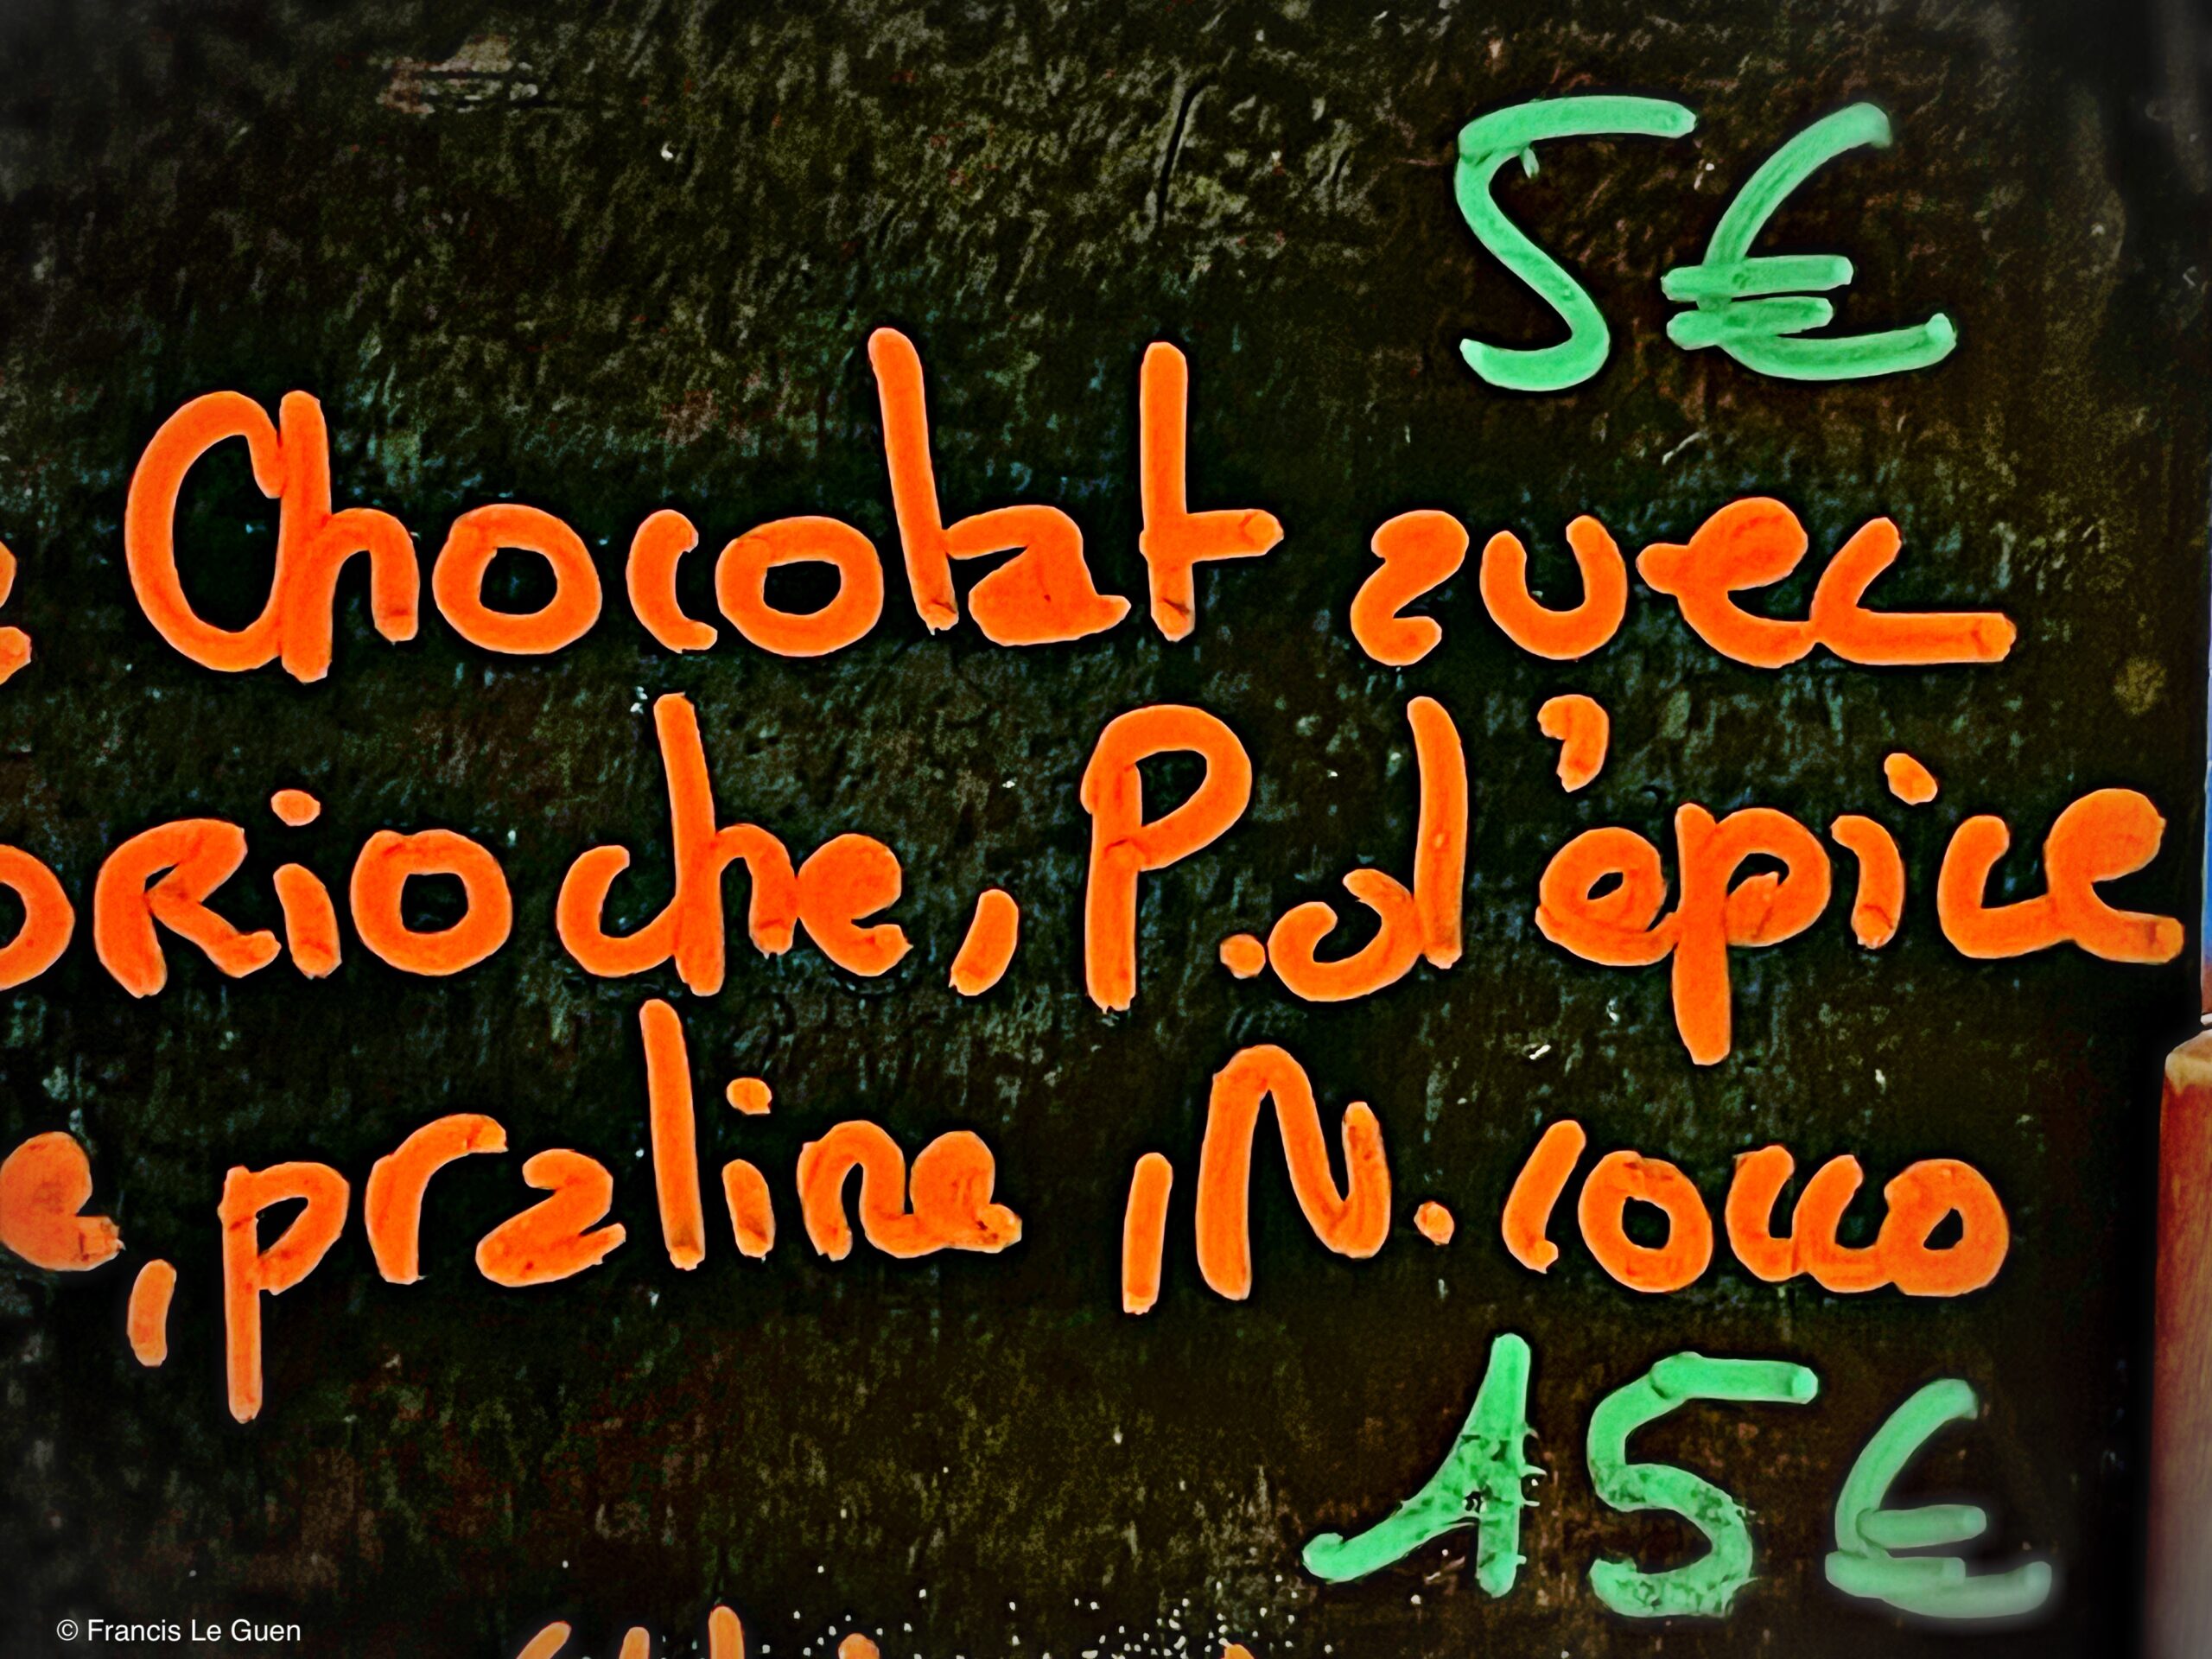 5€
Chocolat avec
brioche, P.d'épice
, praline, N. coco
15€
© Francis Le Guen